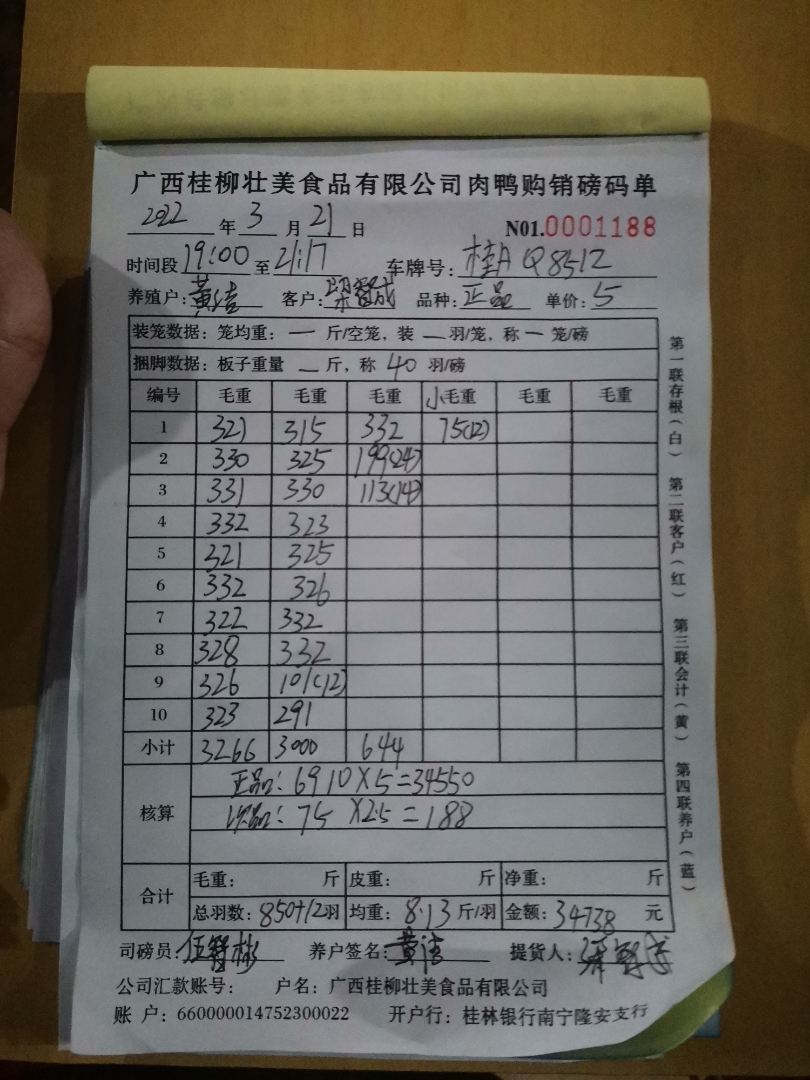 广西桂柳壮美食品有限公司肉鸭购销磅码单
2022 年 3 月 21 日 N01.0001188
时间段 19:00 至 21:17 车牌号: 桂A Q8512
养殖户: 黄洁 客户: 梁智成 品种: 正品 单价: 5
装笼数据: 笼均重: 一 斤/空笼, 装 一 羽/笼, 称 一 笼/磅
捆脚数据: 板子重量 一 斤, 称 40 羽/磅
编号 毛重 毛重 毛重 小毛重 毛重 毛重
1 321 315 332 75(12)
2 330 325 199(24)
3 331 330 113(14)
4 332 323
5 321 325
6 332 326
7 322 332
8 328 332
9 326 101(12)
10 323 291
小计 3266 3000 644
核算 正品: 6910×5=34550
次品: 75×2.5=188
合计 毛重: 斤 皮重: 斤 净重: 斤
总羽数: 850+12羽 均重: 8.13 斤/羽 金额: 34738 元
司磅员: 伍智彬 养户签名: 黄洁 提货人:
公司汇款账号: 户名: 广西桂柳壮美食品有限公司
账 户: 660000014752300022 开户行: 桂林银行南宁隆安支行
第一联存根(白) 第二联客户(红) 第三联会计(黄) 第四联养户(蓝)